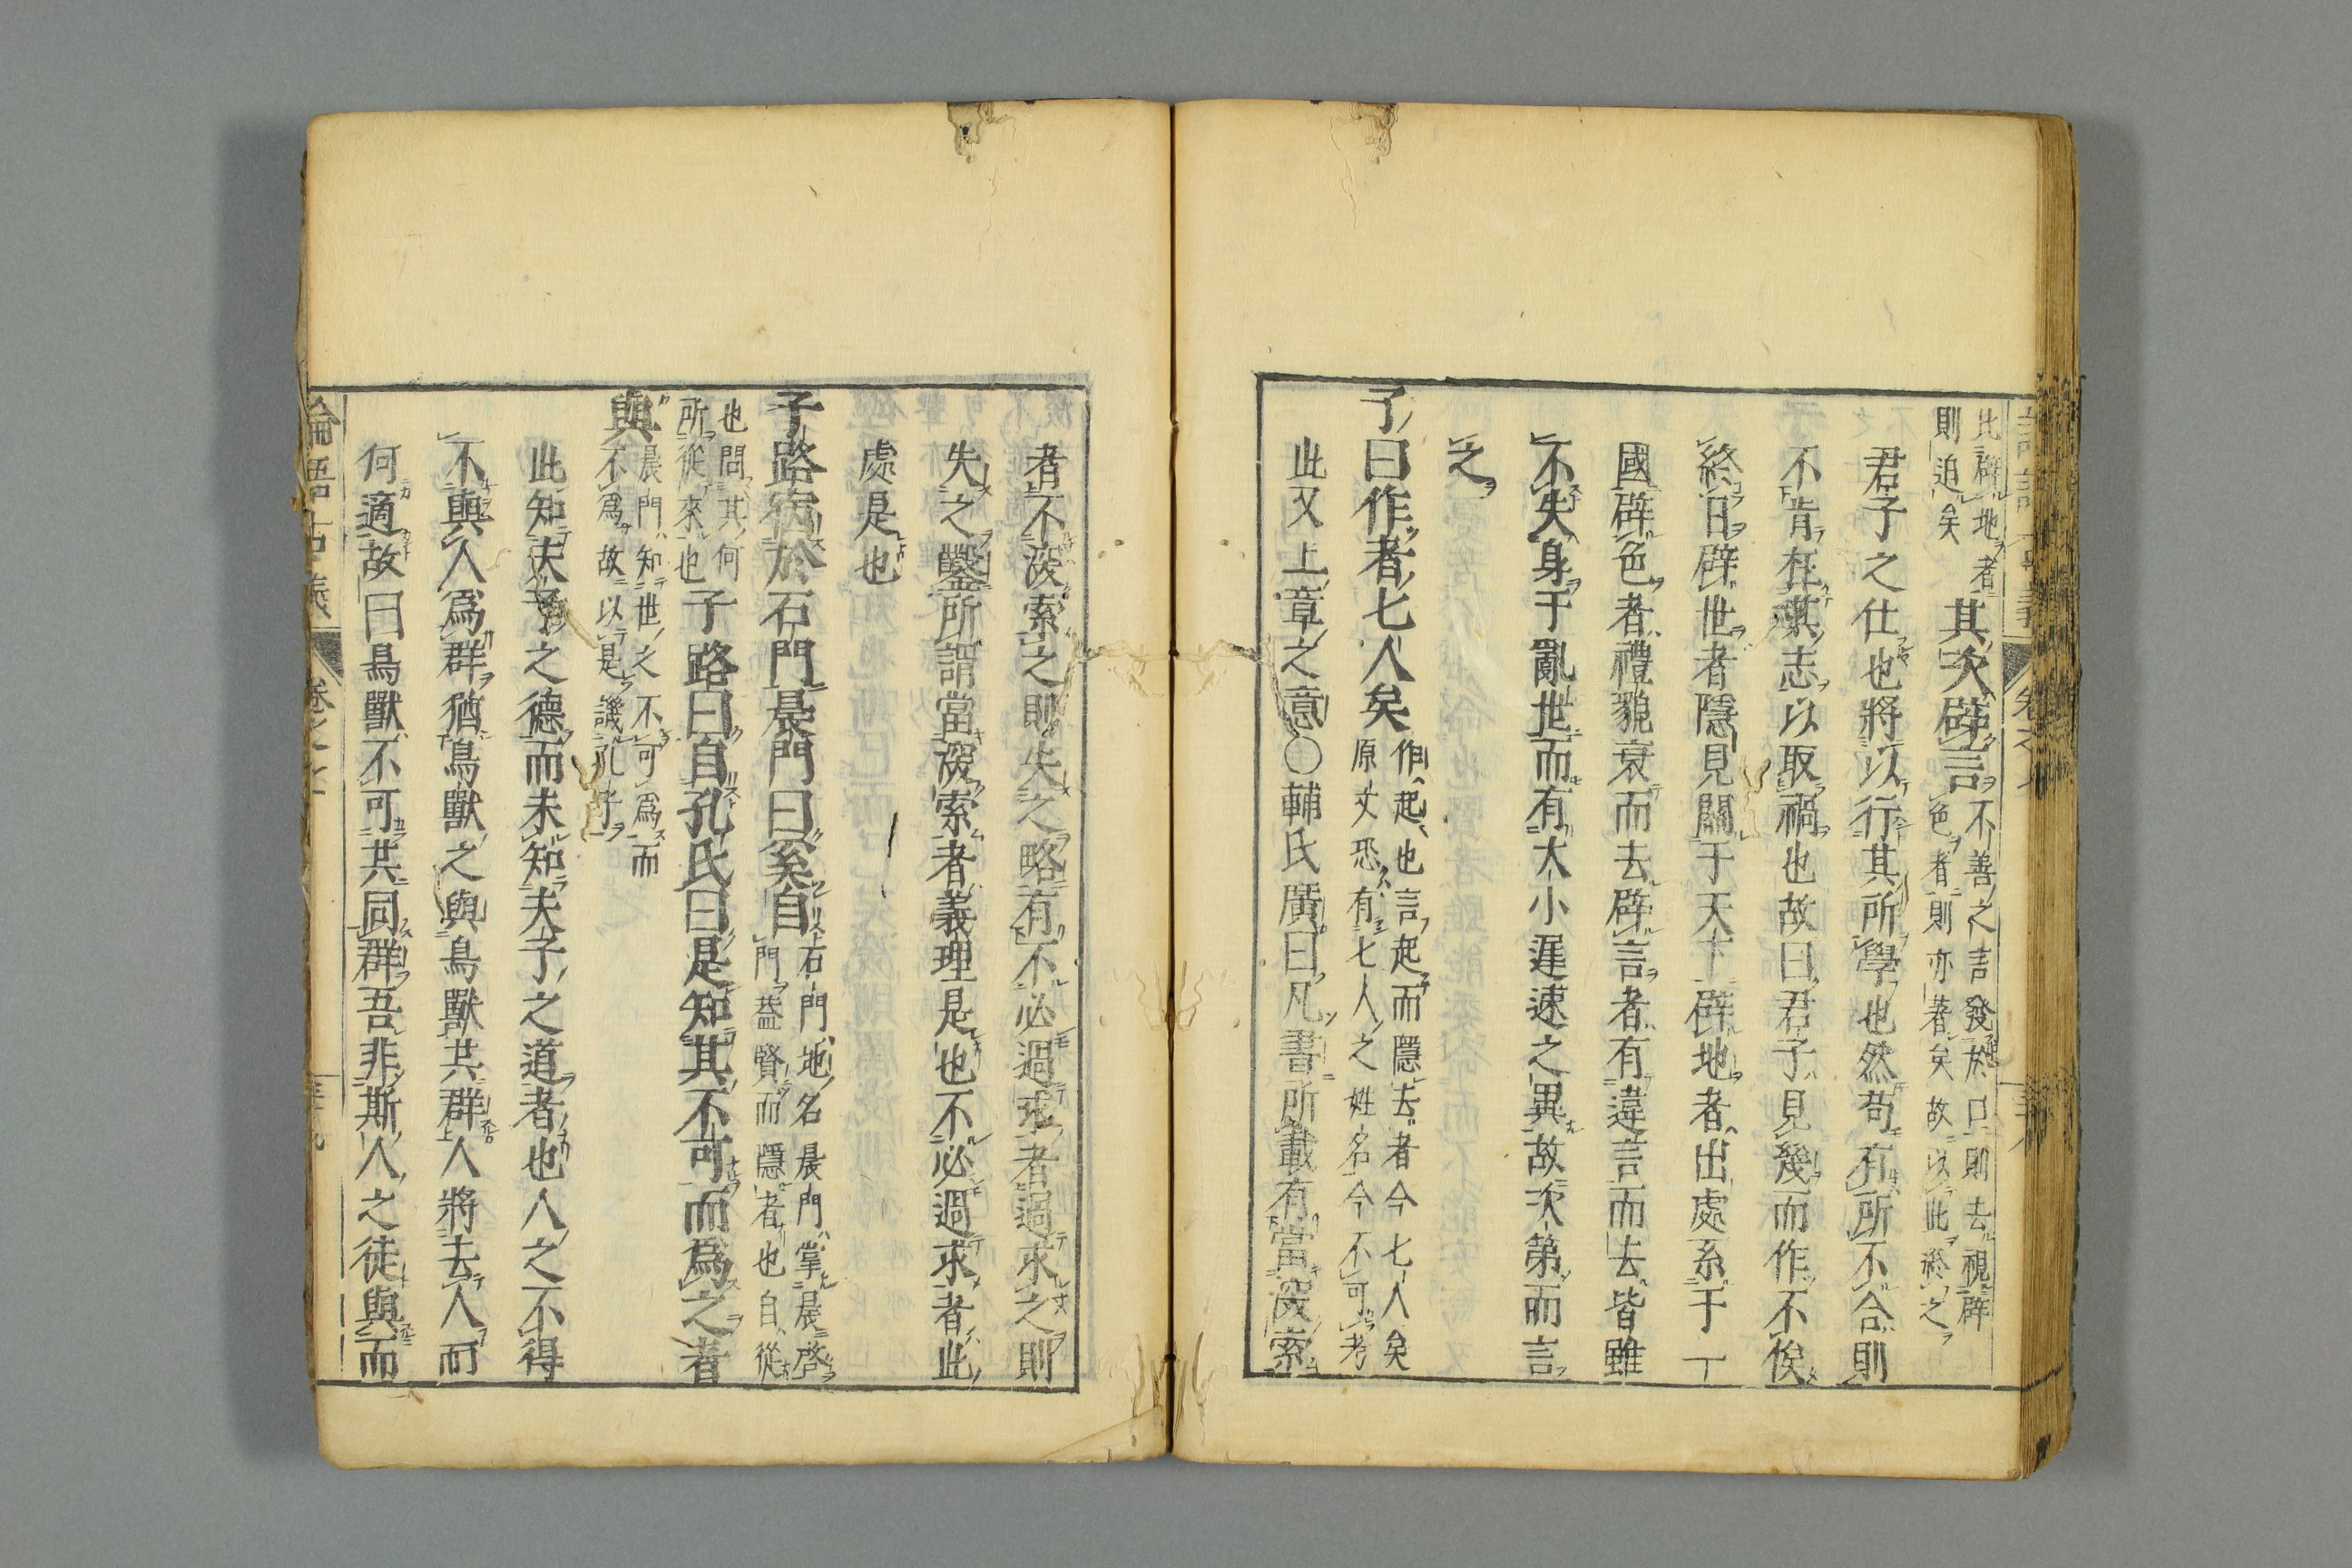 比辟地者
則迫矣
其次辟言
不善之言發於口則去視辟
色者則亦著矣故以此終之
君子之仕也將以行其所學也然苟有所不合則
不肯枉其志以取禍也故曰君子見幾而作不俟
終日辟世者隱見關于天下辟地者出處系于一
國辟色者禮貌衰而去辟言者有違言而去皆雖
不失身于亂世而有大小遲速之異故次第而言
之
子曰作者七人矣
作起也言起而隱去者今七人矣
原丈恐有七人之姓名今不可考
此又上章之意〇輔氏廣曰凡書所載有當深索
者不深索之則失之略有不必過求者過求之則
失之鑿所謂當深索者義理是也不必過求者此
處是也
子路宿於石門晨門曰奚自
石門地名晨門掌晨啓
門蓋賢而隱者也自從
也問其何
所從來也
子路曰自孔氏曰是知其不可而爲之者
與
晨門知世之不可爲而
不爲故以是譏孔子
此知夫子之德而未知夫子之道者也人之不得
不與人爲群猶鳥獸之與鳥獸共群人將去人而
何適故曰鳥獸不可共同群吾非斯人之徒與而
論語古義
卷之七